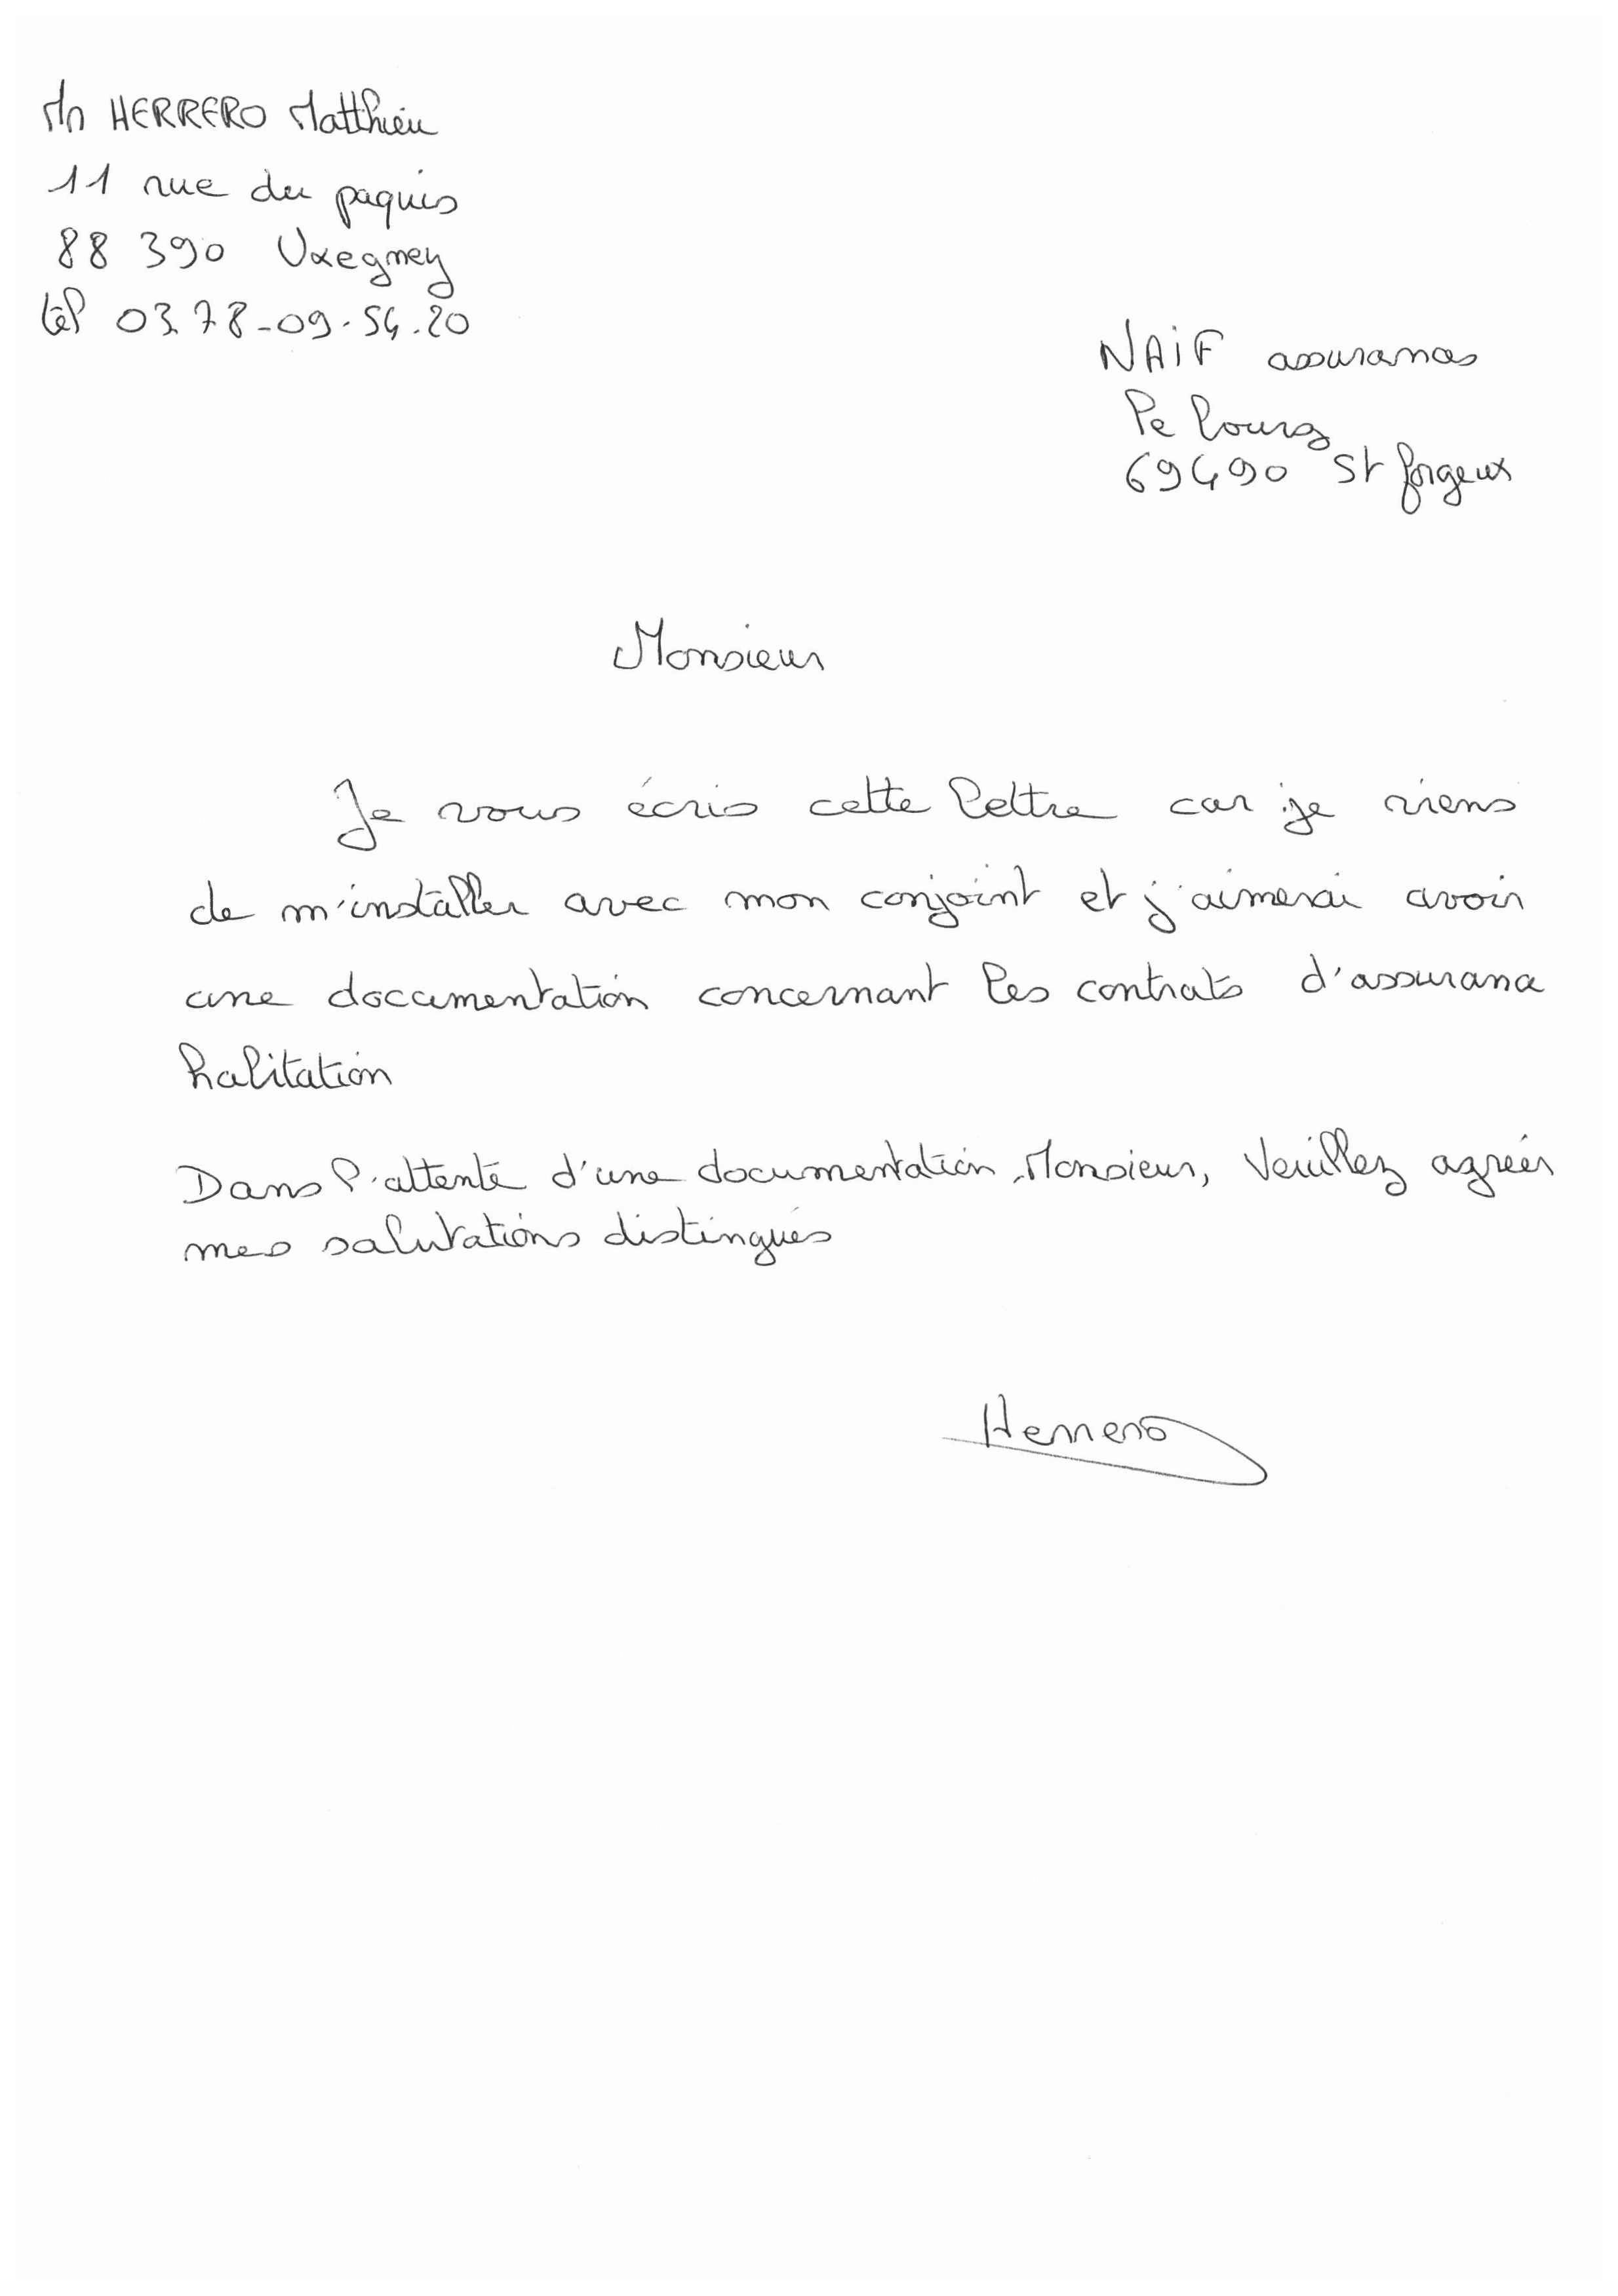 Mr HERRERO Matthieu
11 rue du paquis
88 390 Uxegney
tél 03.78-09.54.20
NAIF assurances
Le bourg
69490 St forgeux
Monsieur
Je vous écris cette lettre car je viens
de m'installer avec mon conjoint et j'aimerai avoir
une documentation concernant les contrats d'assurance
habitation
Dans l'attente d'une documentation, Monsieur, Veuillez agréer
mes salutations distingués
Herrero